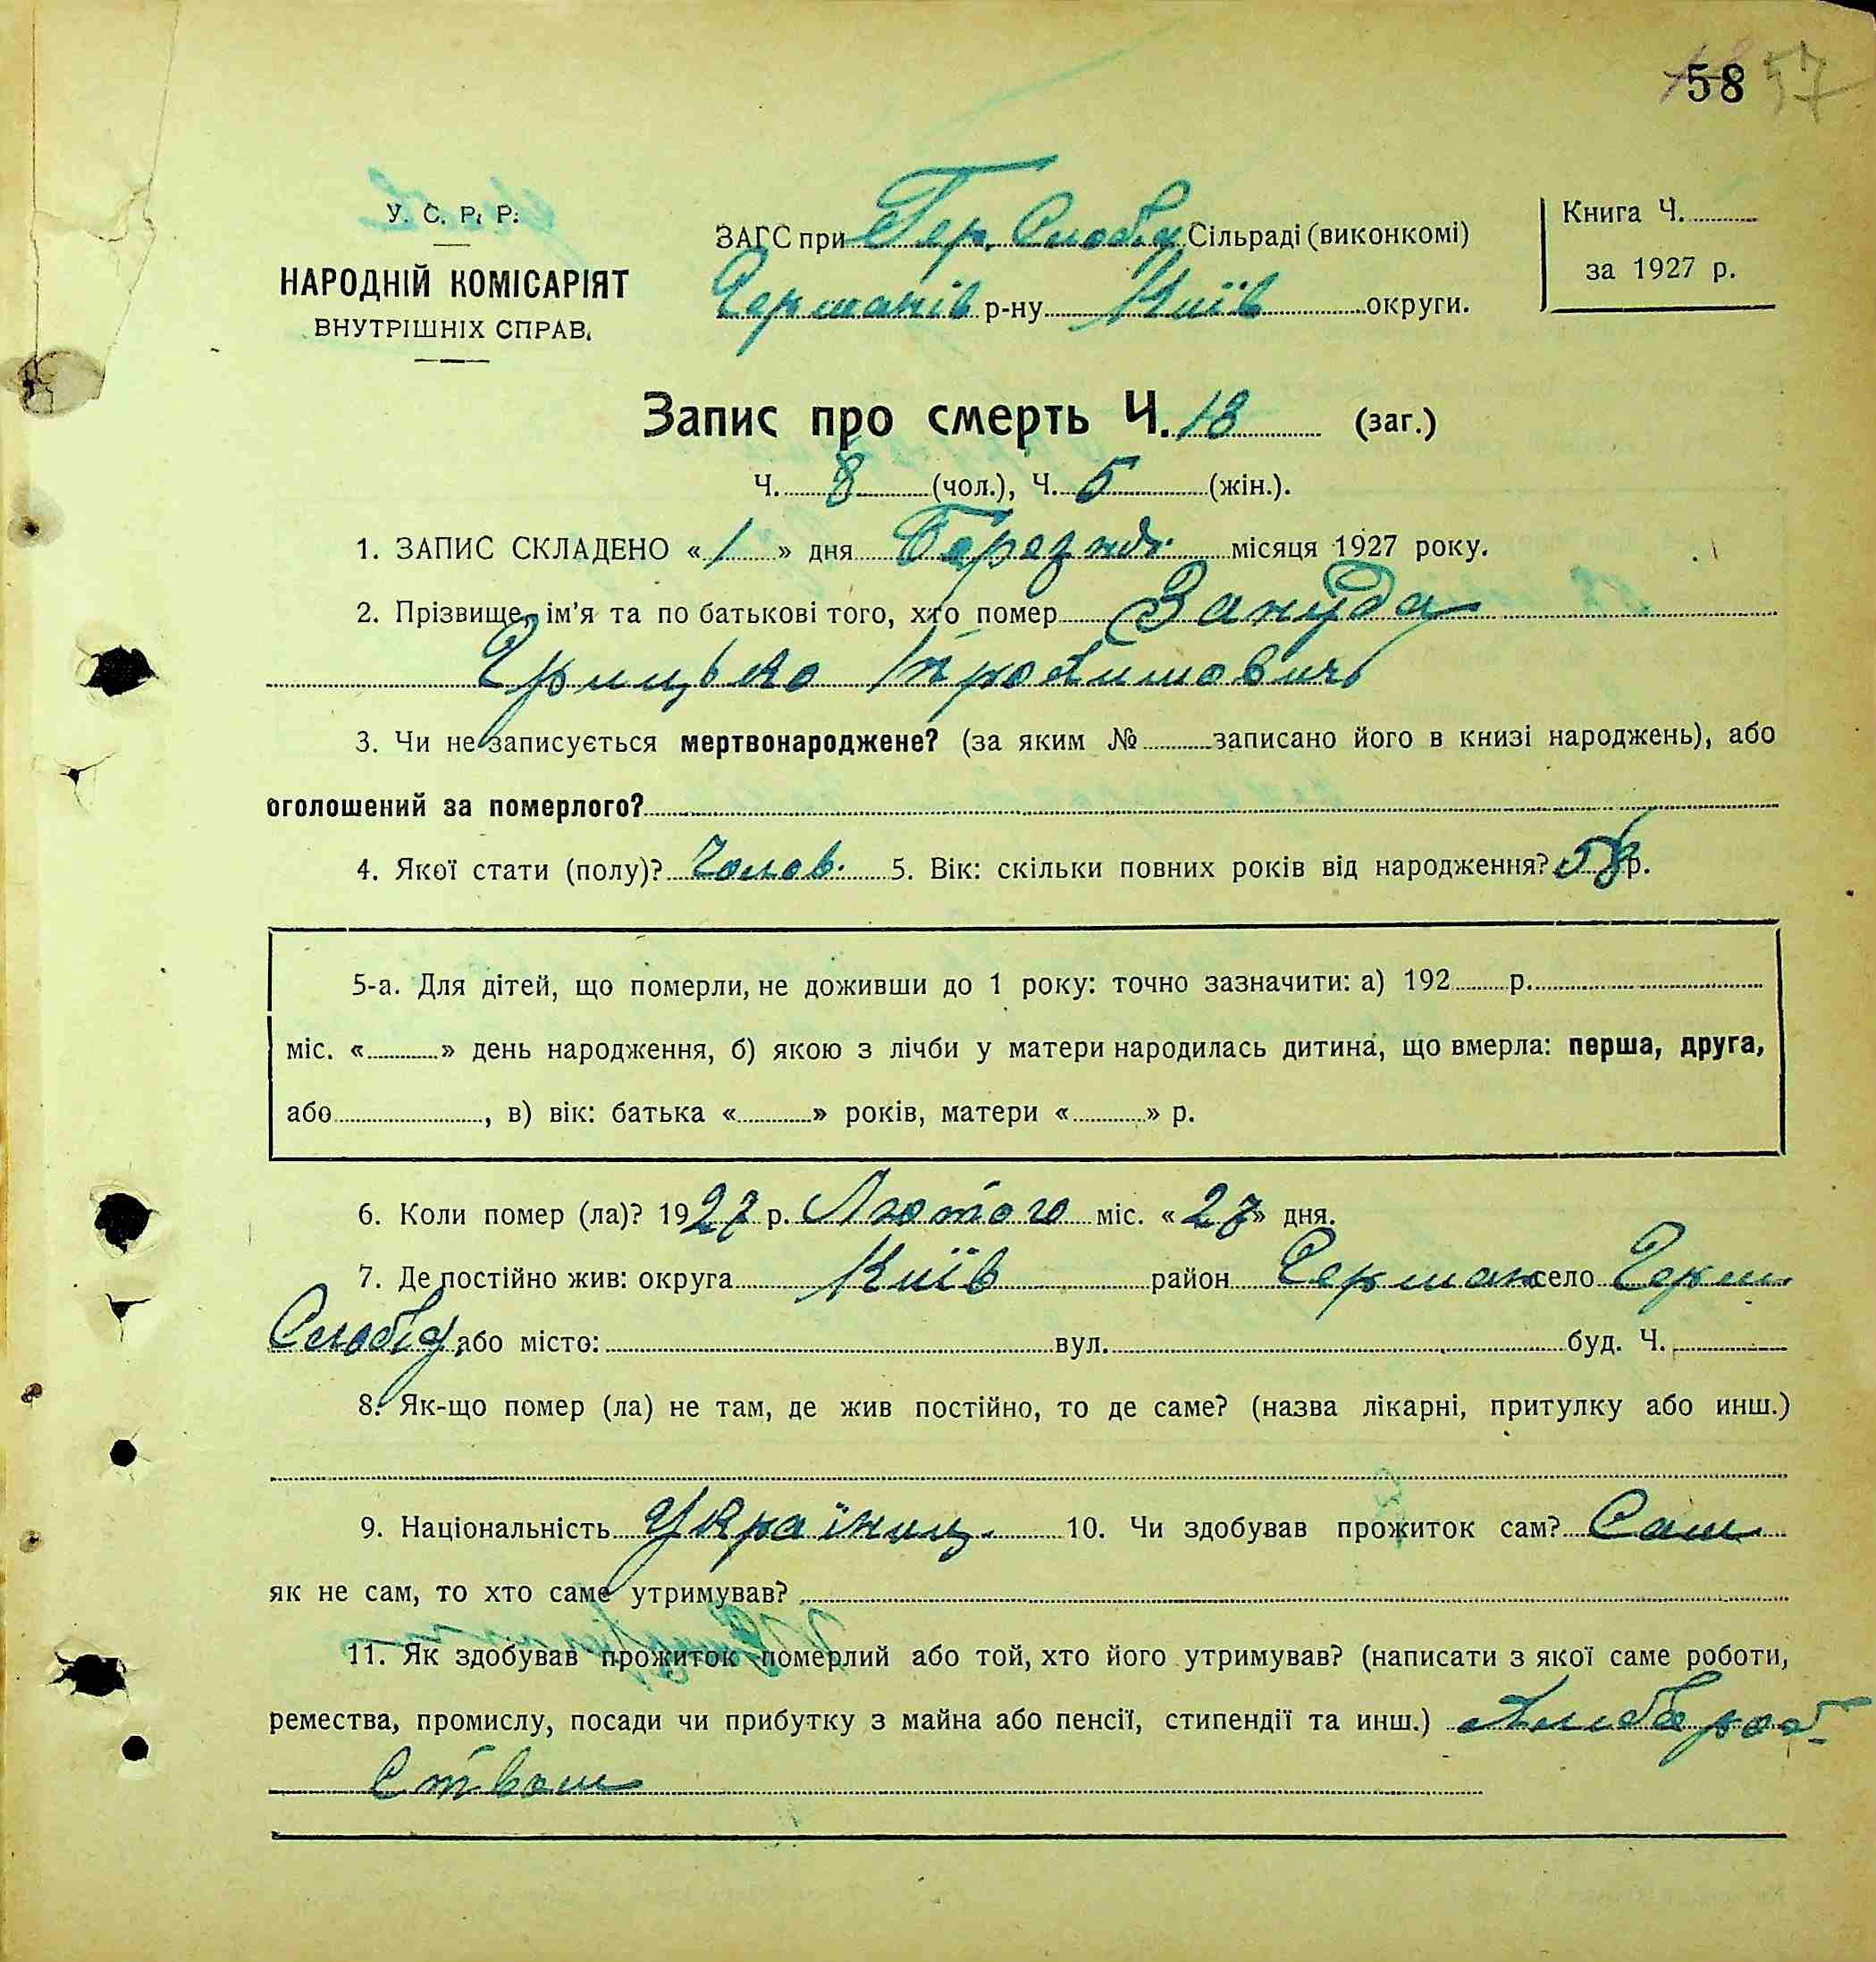 58 57
У. С. Р. Р.
НАРОДНІЙ КОМІСАРІЯТ
ВНУТРІШНІХ СПРАВ.
ЗАГС при Гер. Слобід Сільраді (виконкомі)
Германів р-ну Київ округи.
Книга Ч.
за 1927 р.
Запис про смерть Ч. 13 (заг.)
Ч. 8 (чол.), Ч. 5 (жін.).
1. ЗАПИС СКЛАДЕНО « 1 » дня Березня місяця 1927 року.
2. Прізвище, ім'я та по батькові того, хто помер Зануда
Грицько Трохимович
3. Чи не записується мертвонароджене? (за яким № записано його в книзі народжень), або
оголошений за померлого?
4. Якої стати (полу)? Чолов. 5. Вік: скільки повних років від народження? 58 р.
5-а. Для дітей, що померли, не доживши до 1 року: точно зазначити: а) 192 р.
міс. « » день народження, б) якою з лічби у матери народилась дитина, що вмерла: перша, друга,
або , в) вік: батька « » років, матери « » р.
6. Коли помер (ла)? 1927 р. Лютого міс. « 27 » дня.
7. Де постійно жив: округа Київ район Герман село Герм.
Слобід. або місто: вул. буд. Ч.
8. Як-що помер (ла) не там, де жив постійно, то де саме? (назва лікарні, притулку або инш.)
9. Національність Українц. 10. Чи здобував прожиток сам? Сам
як не сам, то хто саме утримував?
11. Як здобував прожиток померлий або той, хто його утримував? (написати з якої саме роботи,
ремества, промислу, посади чи прибутку з майна або пенсії, стипендії та инш.) Хлібороб-
ством